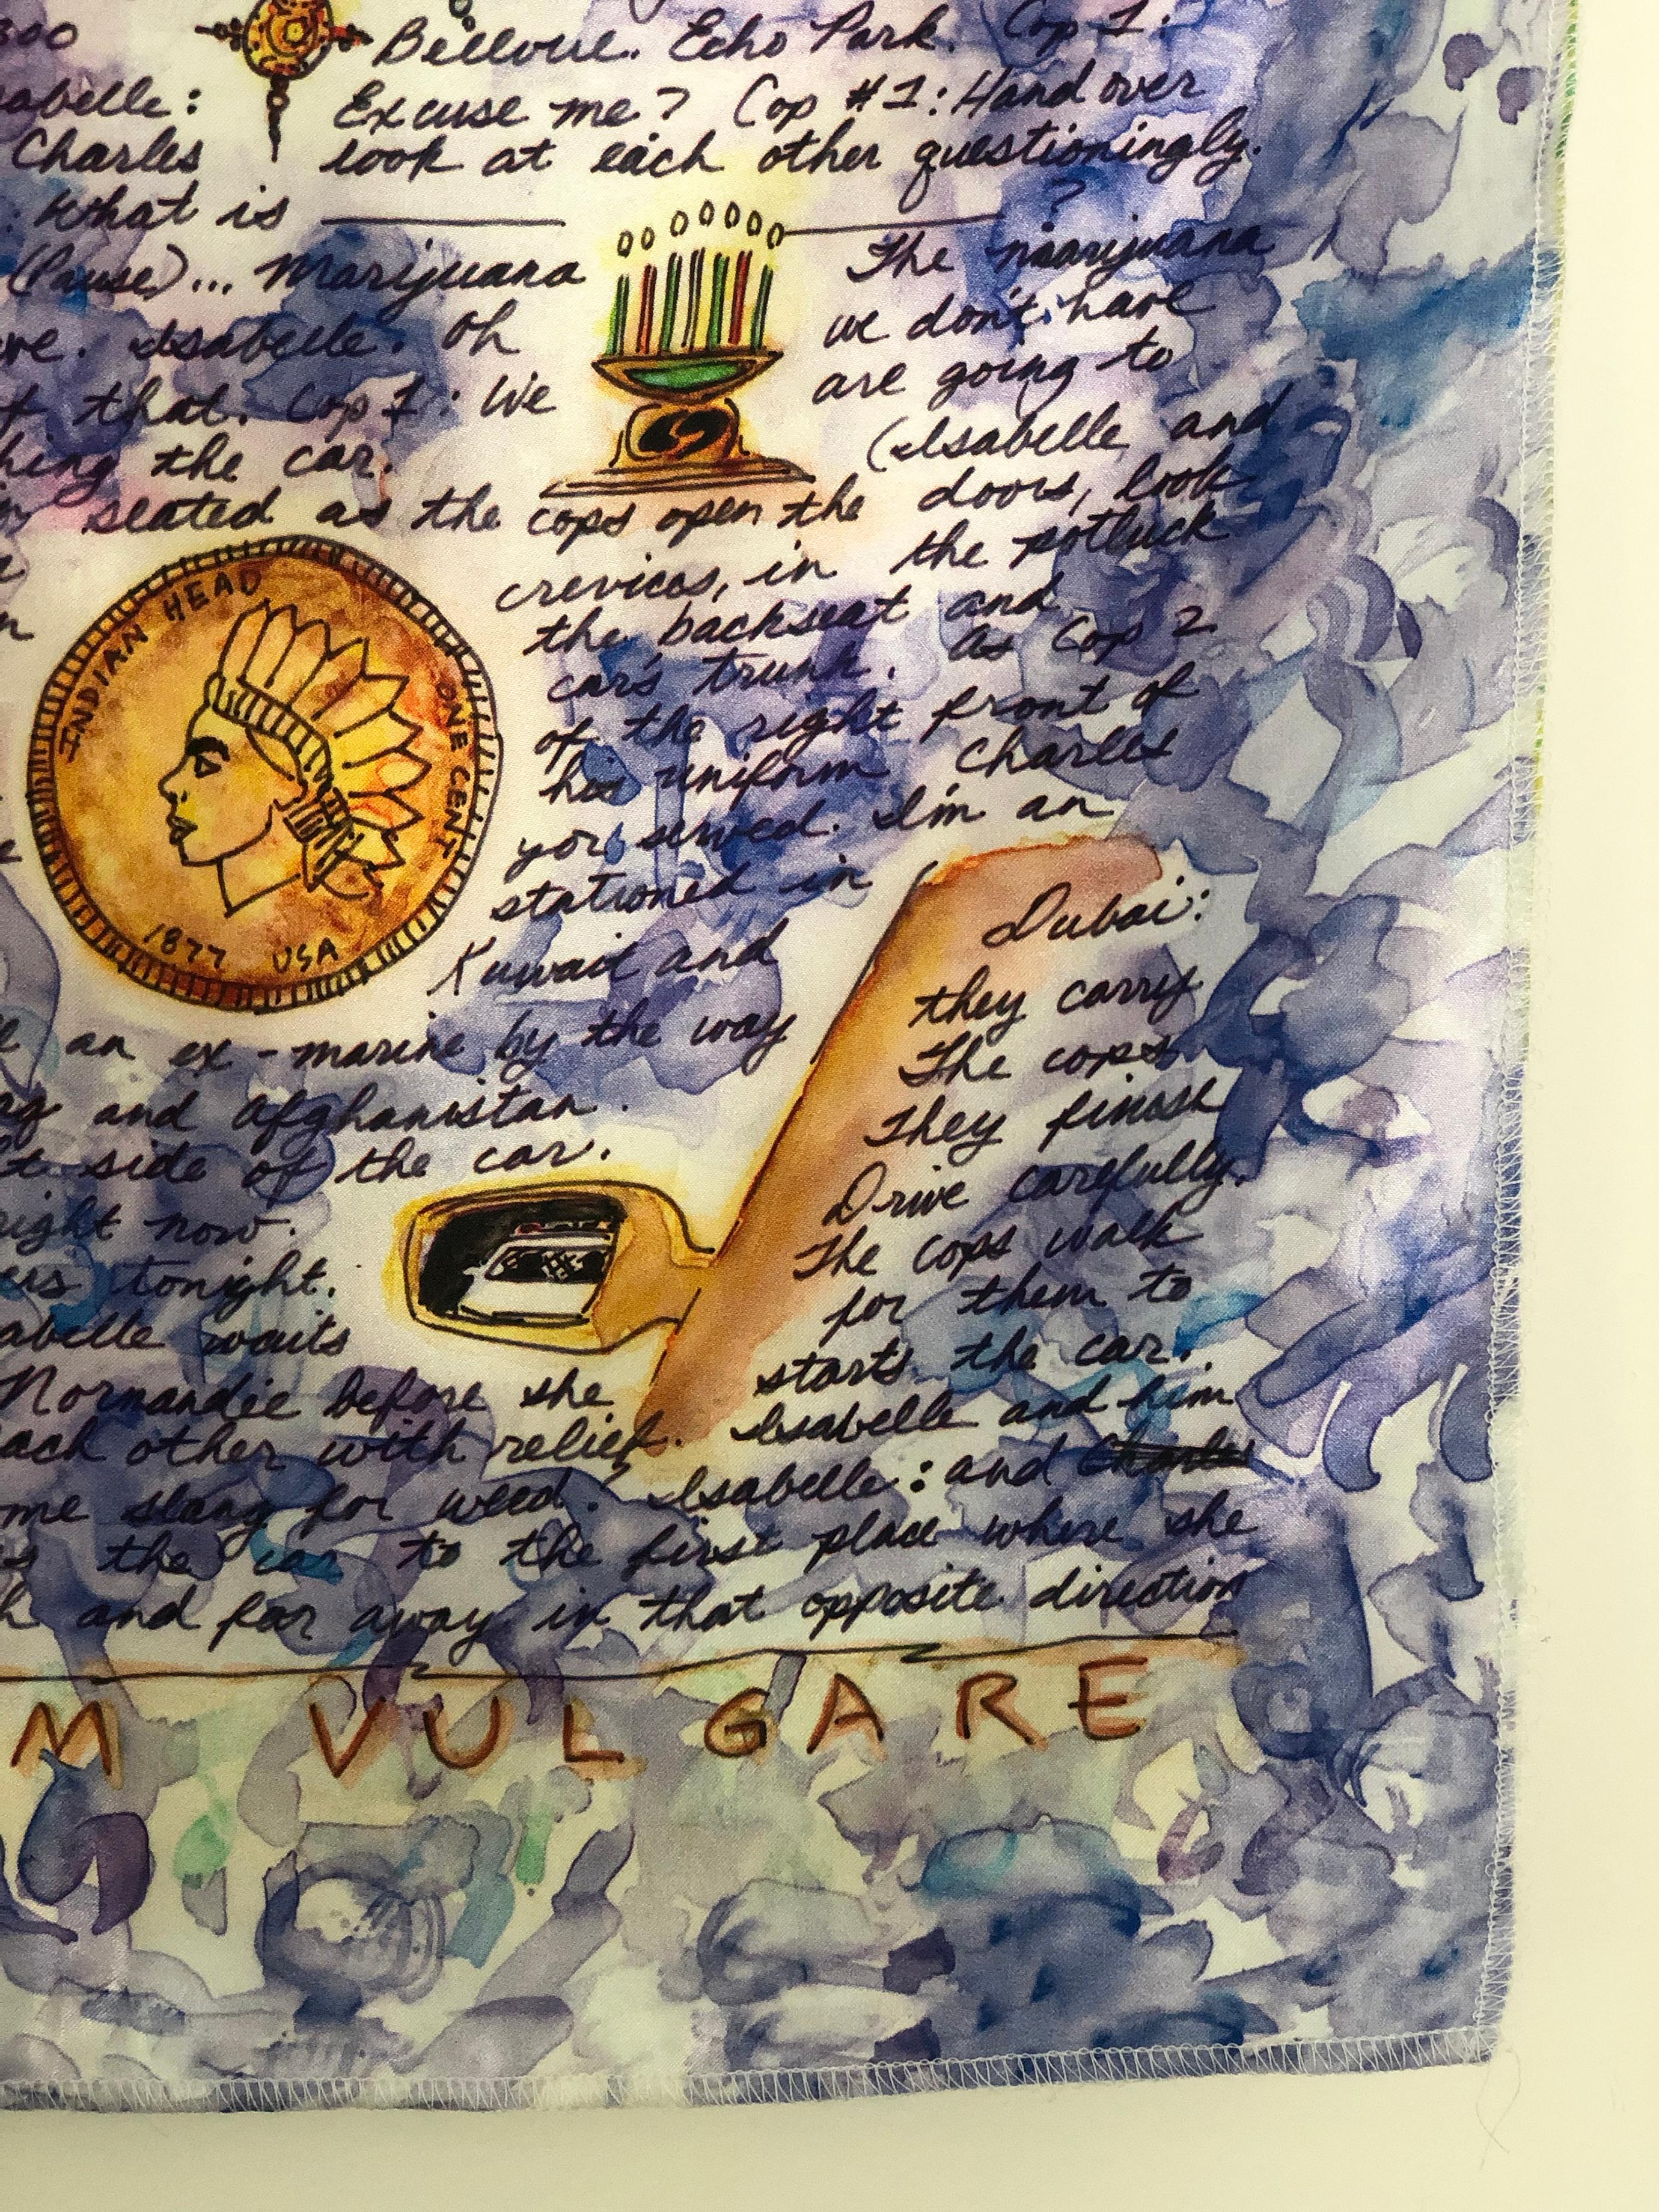 300 Bellvue. Echo Park. Cop 1:
abelle: Excuse me? Cop #1: Hand over
Charles look at each other questioningly.
: What is ?
(Pause)... Marijuana The marijuana
ve. Isabelle. Oh we don't have
t that. Cop 1: We are going to
hing the car. (Isabelle and
seated as the cops open the doors, look
crevices, in the potluck
the backseat and
car's trunk. As Cop 2
of the right front of
his uniform Charles
you served. I'm an
stationed in Dubai:
Kuwait and they carry
an ex-marine by the way The cops
and Afghanistan. They finish
t side of the car. Drive carefully.
right now. The cops walk
ers tonight. for them to
abelle waits starts the car.
Normandie before she Isabelle and him
ach other with relief. Isabelle: and Charles
me slang for weed? place where she
is the car to the first
h and far away in that opposite direction
INDIAN HEAD
ONE CENT
1877 USA
M VULGARE